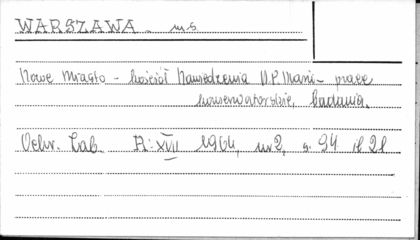 WARSZAWA m.s.
Nowe Miasto - kościół Nawiedzenia N.P. Marii - prace
konserwatorskie, badania.
Ochr. Zab. R: XVII 1964, nr 2, s. 94 il 21